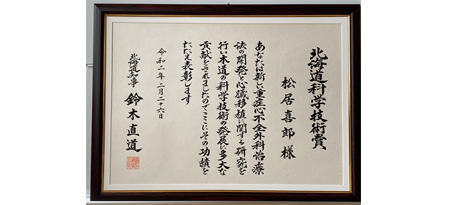 北海道科学技術賞
松居喜郎様
あなたは新しい重症心不全外科治療
法の開発と心臓移植に関する研究を
行い本道の科学技術の発展に多大な
貢献をされましたのでここにその功績を
たたえ表彰します
令和二年二月二十六日
北海道知事 鈴木直道